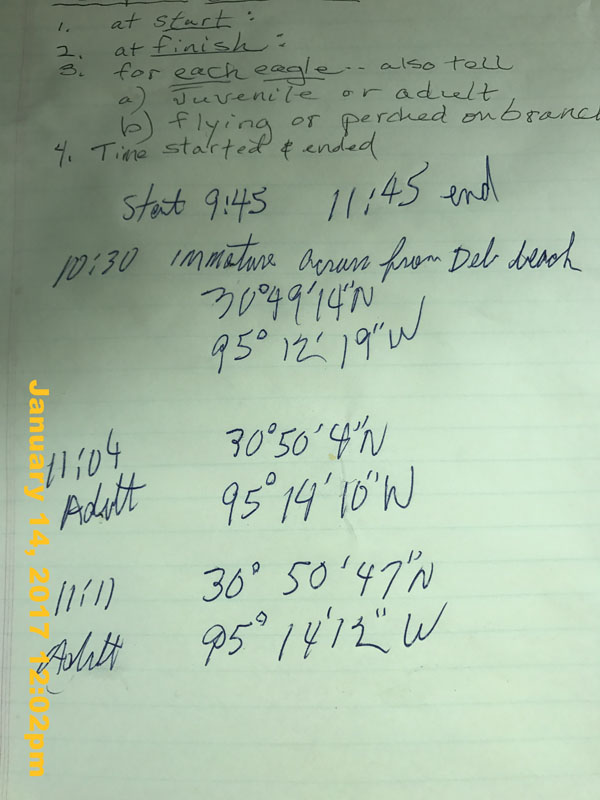 1. at start:
2. at finish:
3. for each eagle -- also tell
a) Juvenile or adult
b) flying or perched on branch
4. Time started & ended
Start 9:45 11:45 end
10:30 immature across from Deb beach
30°49'14"N
95° 12' 19"W
11:04 30°50'4"N
Adult 95°14'10"W
11:11 30° 50'47"N
Adult 95° 14'12"W
January 14, 2017 12:02pm